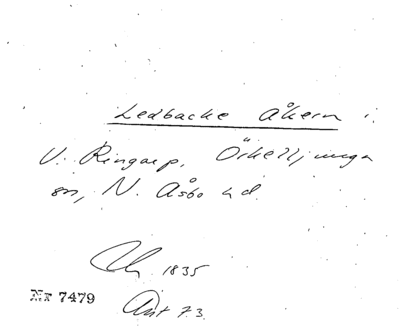 Ledbacke åkern i
V. Ringarp, Örkelljunga
sn, N. Åsbo hd.
1835
Nr 7479
Ant 73.